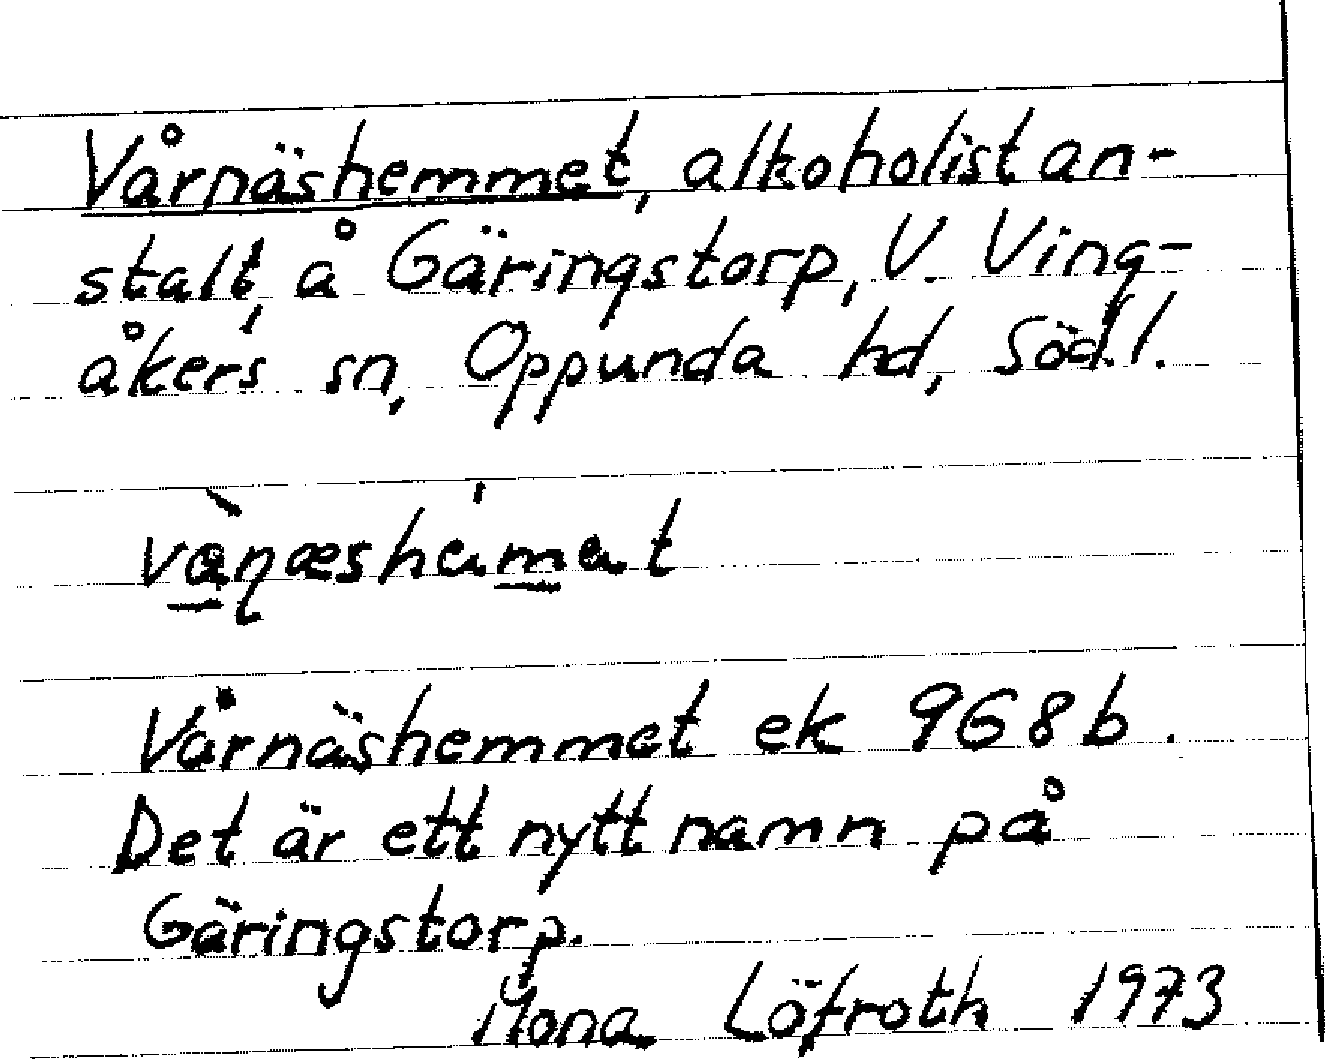 Vårnäshemmet, alkoholistan-
stalt, å Gäringstorp, V. Ving-
åkers sn, Oppunda hd, Södl.

Vårnäshemmet ek 968 b.
Det är ett nytt namn på
Gäringstorp.
Mona Löfroth 1973